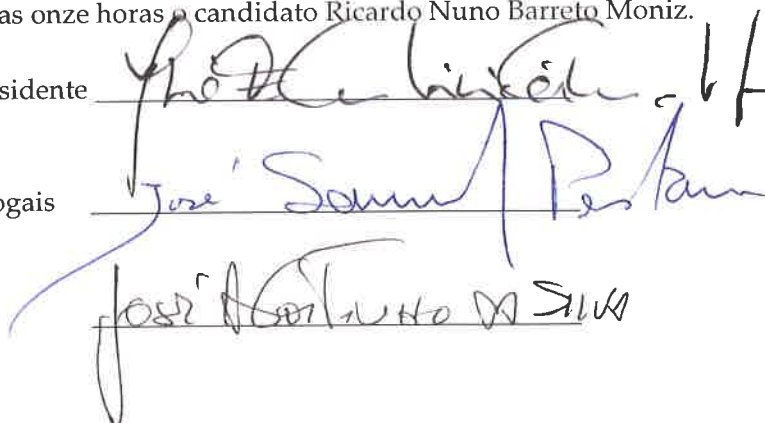 as onze horas o candidato Ricardo Nuno Barreto Moniz.
sidente
ogais José Samuel Pestana
José Agostinho da Silva